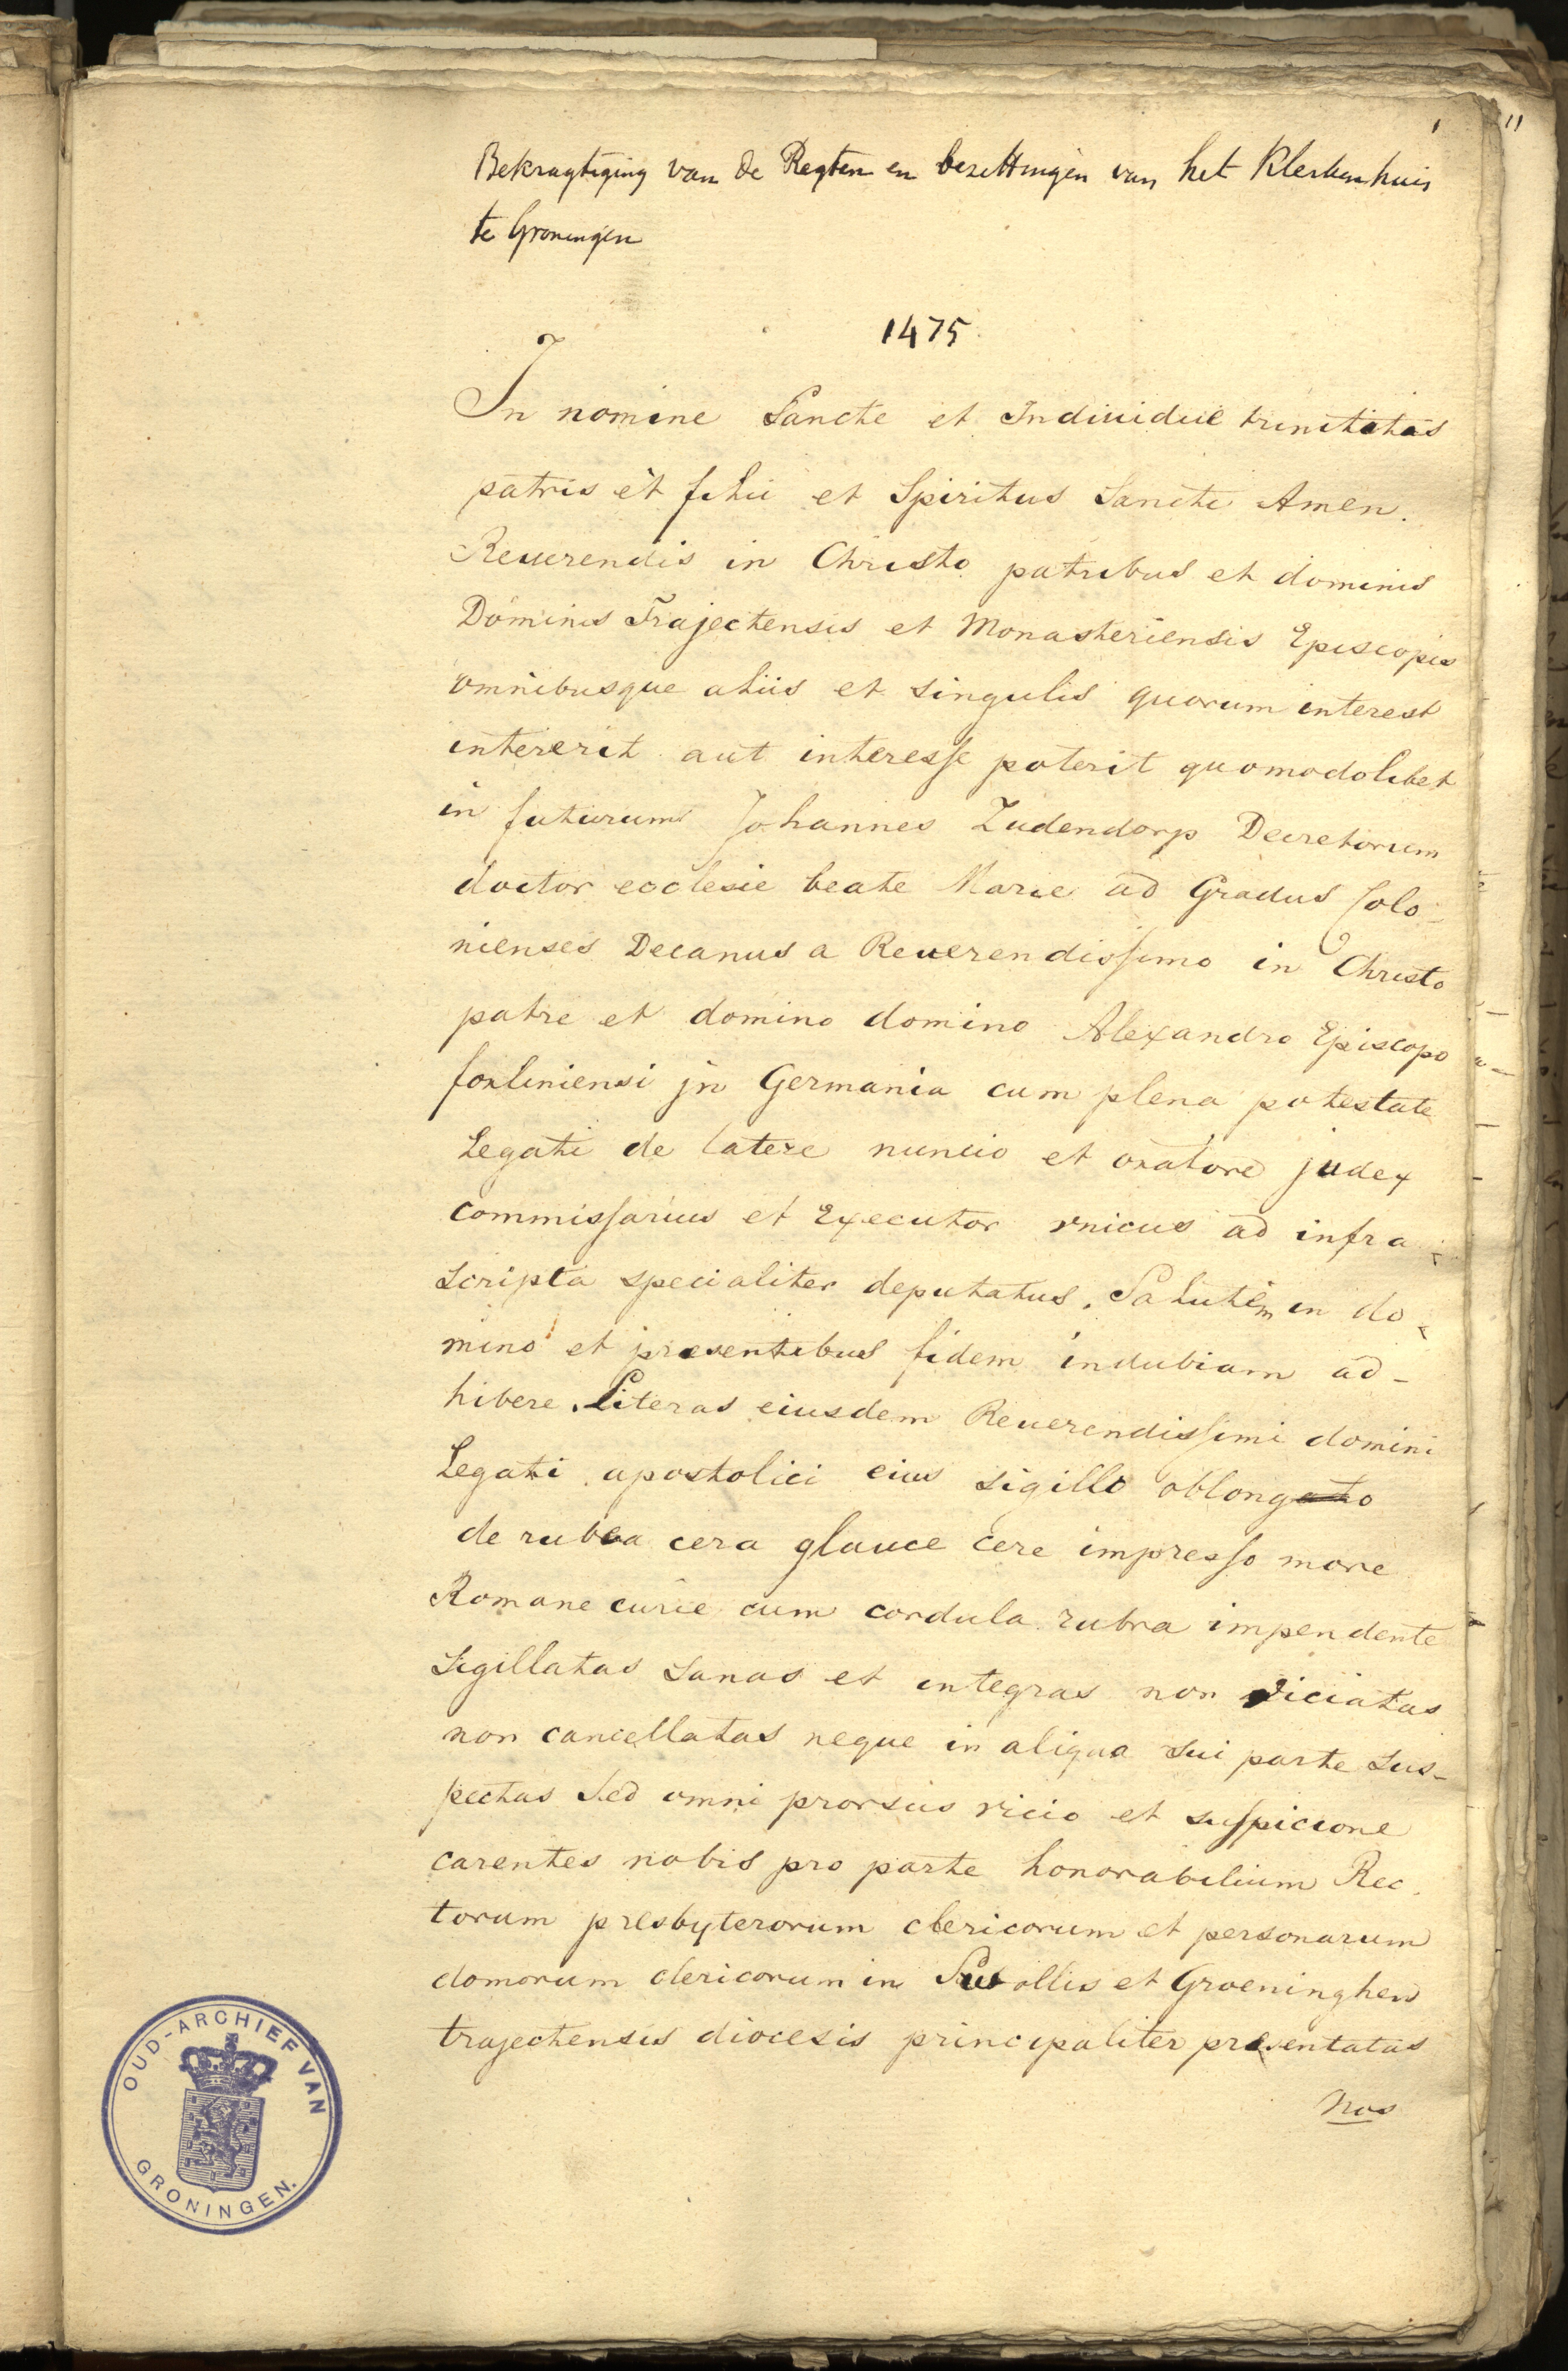 Bekragtiging van de Regten en bezittingen van het Klerkenhuis
te Groningen
1475.
In nomine Sancte et Indiuidue trinitatis
patris et filii et Spiritus Sancti Amen.
Reuerendis in Christo patribus et dominis
Dominis Trajectensis et Monasteriensis Episcopis
omnibusque aliis et singulis quorum interest
intererit aut interesse poterit quomodolibet
in futurum Johannes Zudendorp Decretorum
doctor ecclesie beate Marie ad Gradus Colo-
nienses Decanus a Reuerendissimo in Christo
patre et domino domino Alexandro Episcopo
forliniensi jn Germania cum plena potestate
Legati de latere nuncio et oratore judex
commissarius et Executor vnicus ad infra-
scripta specialiter deputatus. Salutem in do-
mino et presentibus fidem indubiam ad-
hibere. Literas eiusdem Reuerendissimi domini
Legati apostolici eius sigillo oblongato
de rubea cera glauce cere impresso more
Romane curie cum cordula rubra impendente
Sigillatas sanas et integras non viciatas
non cancellatas neque in aliqua sui parte sus-
pectas Sed omni prorsus vicio et suspicione
carentes nobis pro parte honorabilium Rec-
torum presbyterorum clericorum et personarum
domorum clericorum in Suollis et Groeninghen
trajectensis diocesis principaliter presentatas
Nos
OUD-ARCHIEF VAN
GRONINGEN.